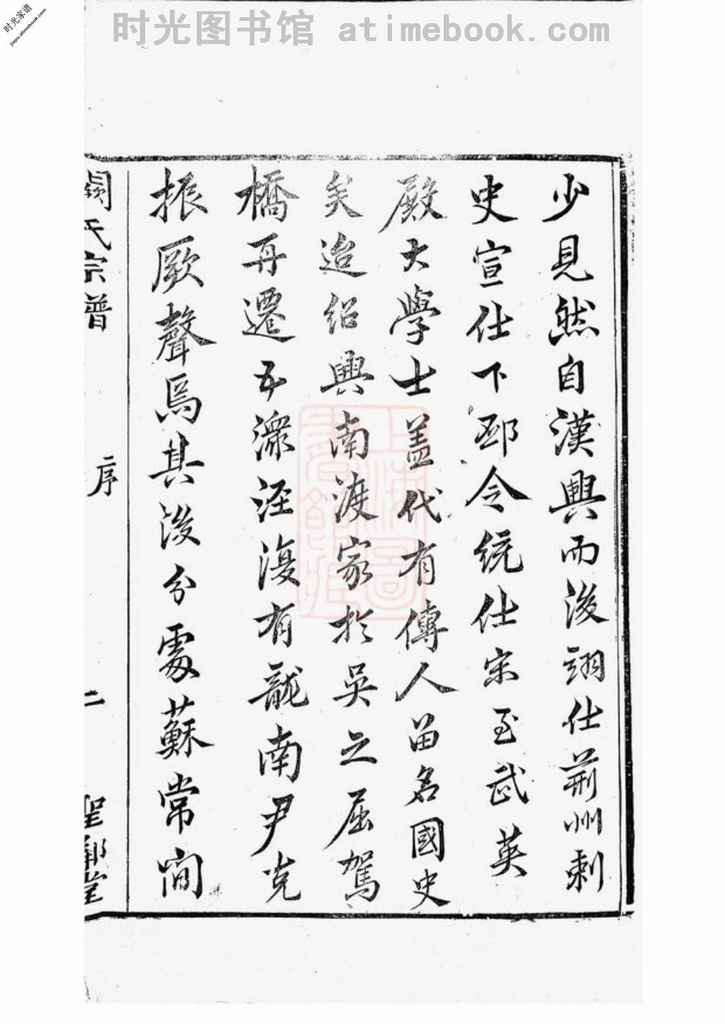 时光图书馆 atimebook.com
时光家谱
少見然自漢興而後翊仕荊州刺
史宣仕下邳令統仕宋至武英
殿大學士蓋代有傳人留名國史
矣迨紹興南渡家於吳之屈駕
橋再遷五潀涇復有龍南尹克
振厥聲焉其後分處蘇常間
闕氏宗譜
序
二